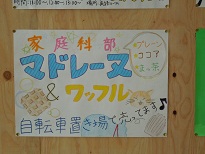 家庭科部
プレーン
ココア
まっ茶
マドレーヌ
&ワッフル
自転車置き場で売ってます♪